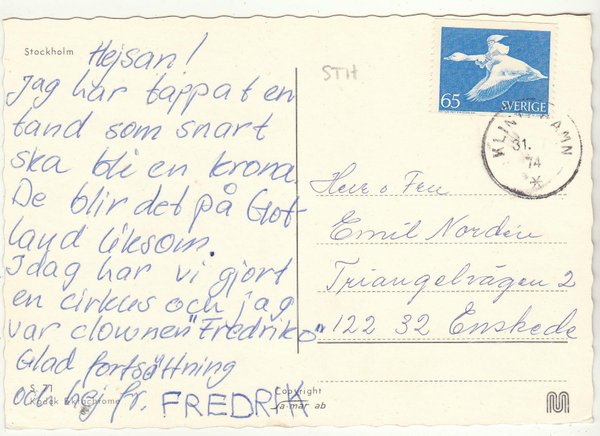 Stockholm
Hejsan!
Jag har tappat en
tand som snart
ska bli en krona.
De blir det på Got-
land liksom.
Idag har vi gjort
en cirkus och jag
var clownen "Fredriko"
Glad fortsättning
och hej fr. FREDRIK
S 71
Kodak Ektachrome
Copyright
ra-mar ab
STH
65 SVERIGE
KLINTEHAMN
31.
74
Herr o Fru
Emil Nordin
Triangelvägen 2
122 32 Enskede